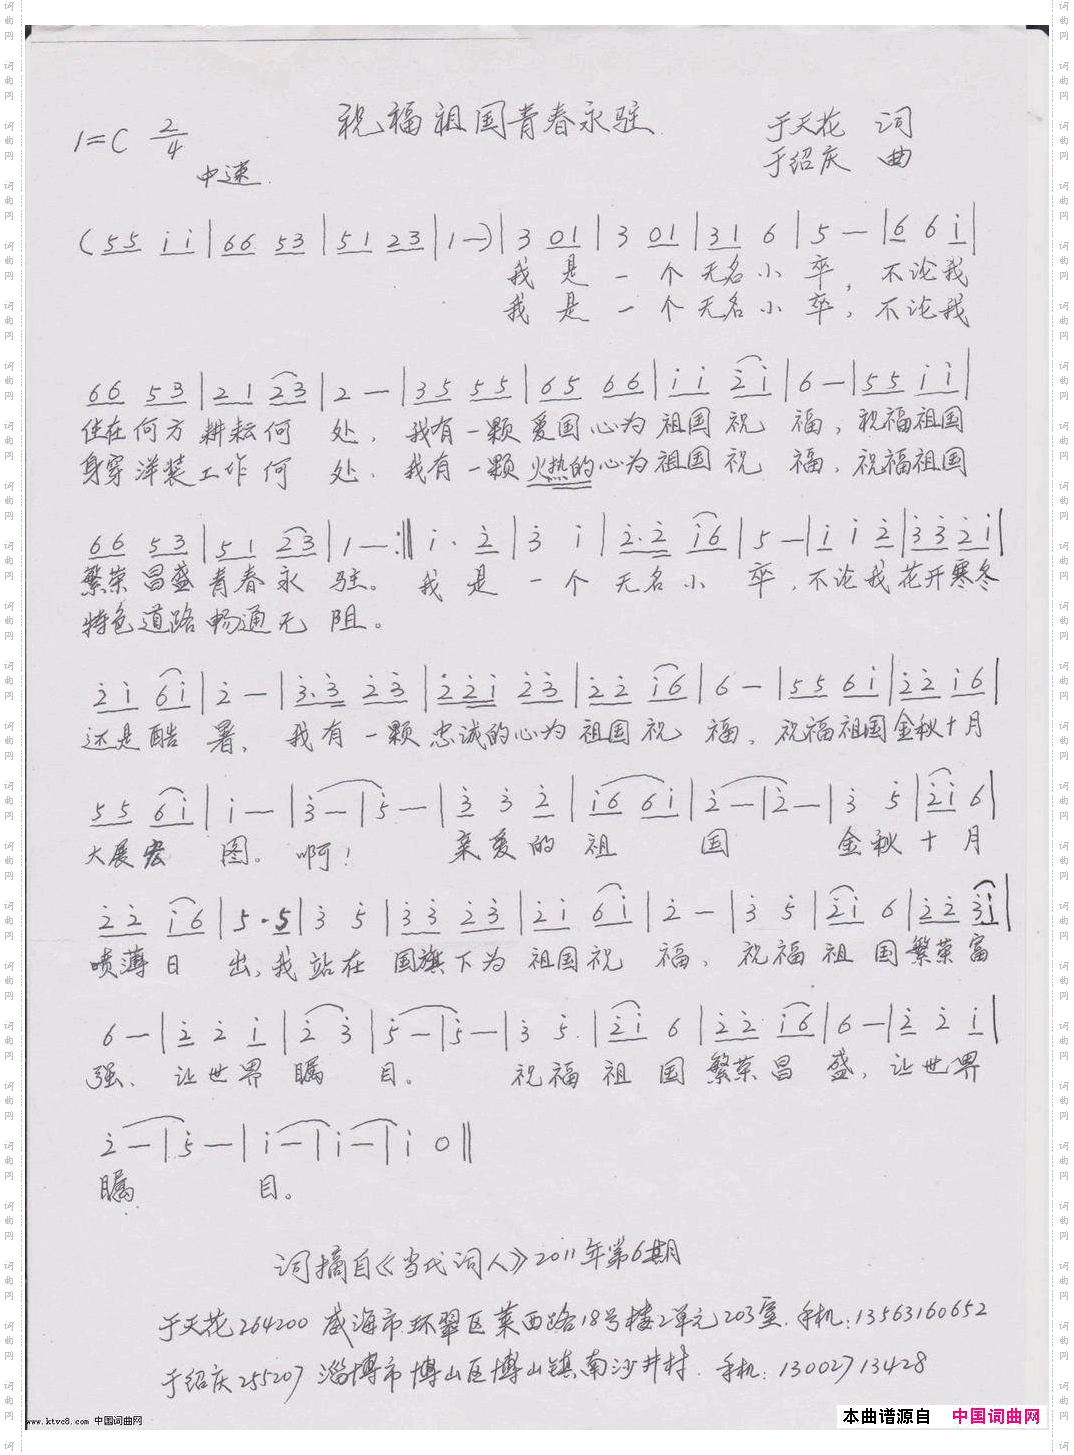 祝福祖国青春永驻
1=C 2/4
中速
于天花 词
于绍庆 曲
(55 i i | 66 53 | 51 23 | 1 —) | 3 01 | 3 01 | 31 6 | 5 — | 6 6 i |
我 是 一 个 无名小 卒, 不论我
我 是 一 个 无名小 卒, 不论我
66 53 | 21 23 | 2 — | 35 55 | 65 66 | i i 2̇ i | 6 — | 55 i i |
住在何方 耕耘何 处, 我有一颗 爱国心为 祖国祝 福, 祝福祖国
身穿洋装 工作何 处, 我有一颗 火热的心为 祖国祝 福, 祝福祖国
66 53 | 51 23 | 1 — :‖ i · 2̇ | 3̇ i | 2̇·2̇ i6 | 5 — | i i 2̇ | 3̇3̇ 2̇i |
繁荣昌盛 青春永 驻。 我 是 一 个 无名小 卒, 不论我 花开寒冬
特色道路 畅通无 阻。
2̇i 6i | 2̇ — | 3̇·3̇ 2̇3̇ | 2̇2̇i 2̇3̇ | 2̇2̇ i6 | 6 — | 55 6i | 2̇2̇ i6 |
还是酷 暑, 我有一颗 忠诚的心为 祖国祝 福, 祝福祖国 金秋十月
55 6i | i — | 3̇ — | 5̇ — | 3̇ 3̇ 2̇ | i6 6i | 2̇ — | 2̇ — | 3̇ 5̇ | 2̇i 6 |
大展宏 图。 啊! 亲爱的 祖 国 金秋十月
2̇2̇ i6 | 5·5 | 3̇ 5̇ | 3̇3̇ 2̇3̇ | 2̇i 6i | 2̇ — | 3̇ 5̇ | 2̇i 6 | 2̇2̇ 3̇i |
喷薄日 出, 我 站在 国旗下为 祖国祝 福, 祝福祖国 繁荣富
6 — | 2̇ 2̇ i | 2̇ 3̇ | 5̇ — | 5̇ — | 3̇ 5̇ | 2̇i 6 | 2̇2̇ i6 | 6 — | 2̇ 2̇ i |
强, 让世界 瞩 目。 祝福祖国 繁荣昌 盛, 让世界
2̇ — | 5̇ — | i — | i — | i 0 ‖
瞩 目。
词摘自《当代词人》2011年第6期
于天花 264200 威海市环翠区莱西路18号楼2单元203室. 手机:13563160652
于绍庆 255207 淄博市博山区博山镇南沙井村. 手机:13002713428
www.ktvc8.com 中国词曲网
本曲谱源自 中国词曲网